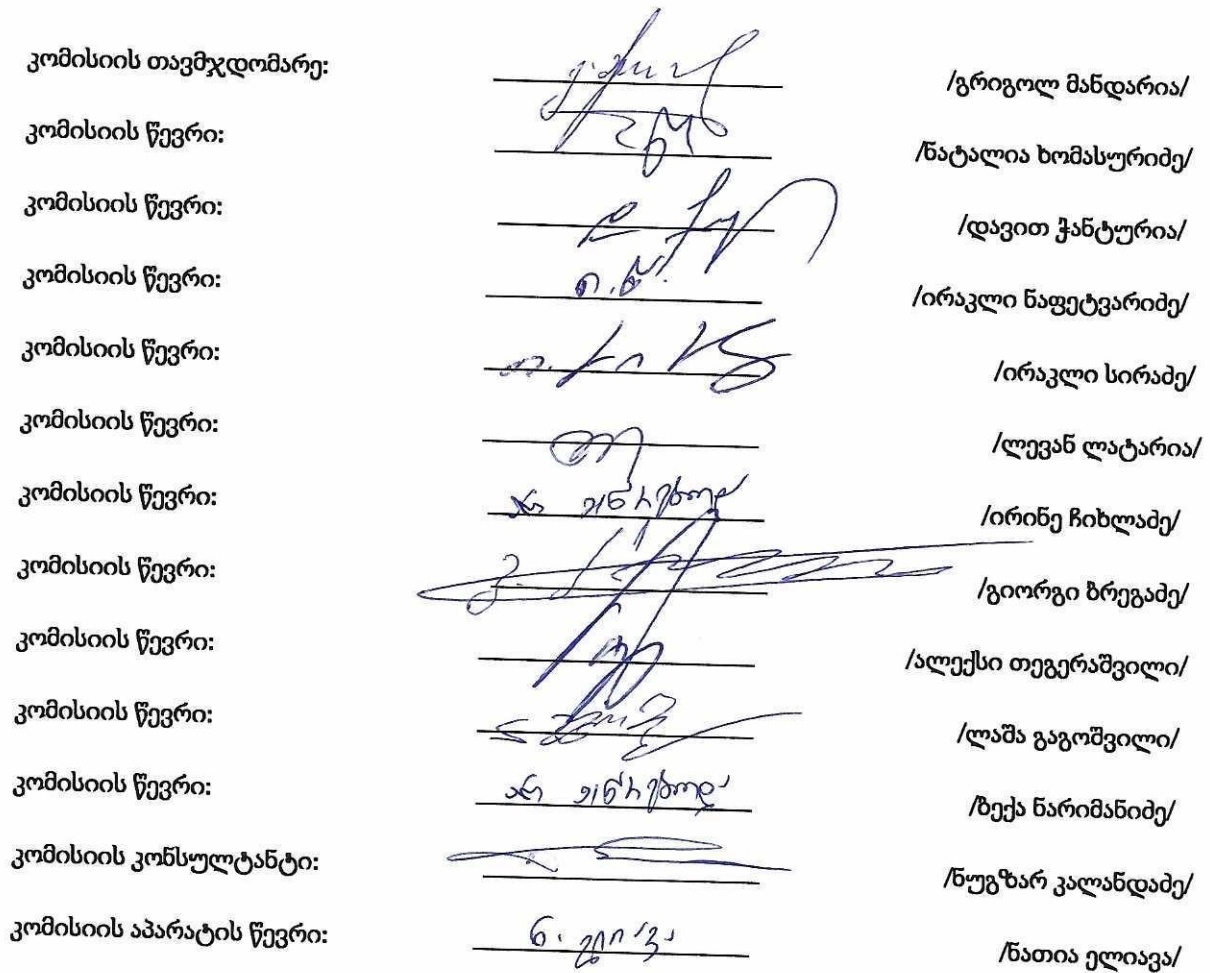 კომისიის თავმჯდომარე: /გრიგოლ მანდარია/
კომისიის წევრი: /ნატალია ხომასურიძე/
კომისიის წევრი: /დავით ჭანტურია/
კომისიის წევრი: /ირაკლი ნაფეტვარიძე/
კომისიის წევრი: /ირაკლი სირაძე/
კომისიის წევრი: /ლევან ლატარია/
კომისიის წევრი: არ ესწრებოდა /ირინე ჩიხლაძე/
კომისიის წევრი: /გიორგი ბრეგაძე/
კომისიის წევრი: /ალექსი თეგერაშვილი/
კომისიის წევრი: /ლაშა გაგოშვილი/
კომისიის წევრი: არ ესწრებოდა /ბექა ნარიმანიძე/
კომისიის კონსულტანტი: /ნუგზარ კალანდაძე/
კომისიის აპარატის წევრი: ნ. ელიავა /ნათია ელიავა/